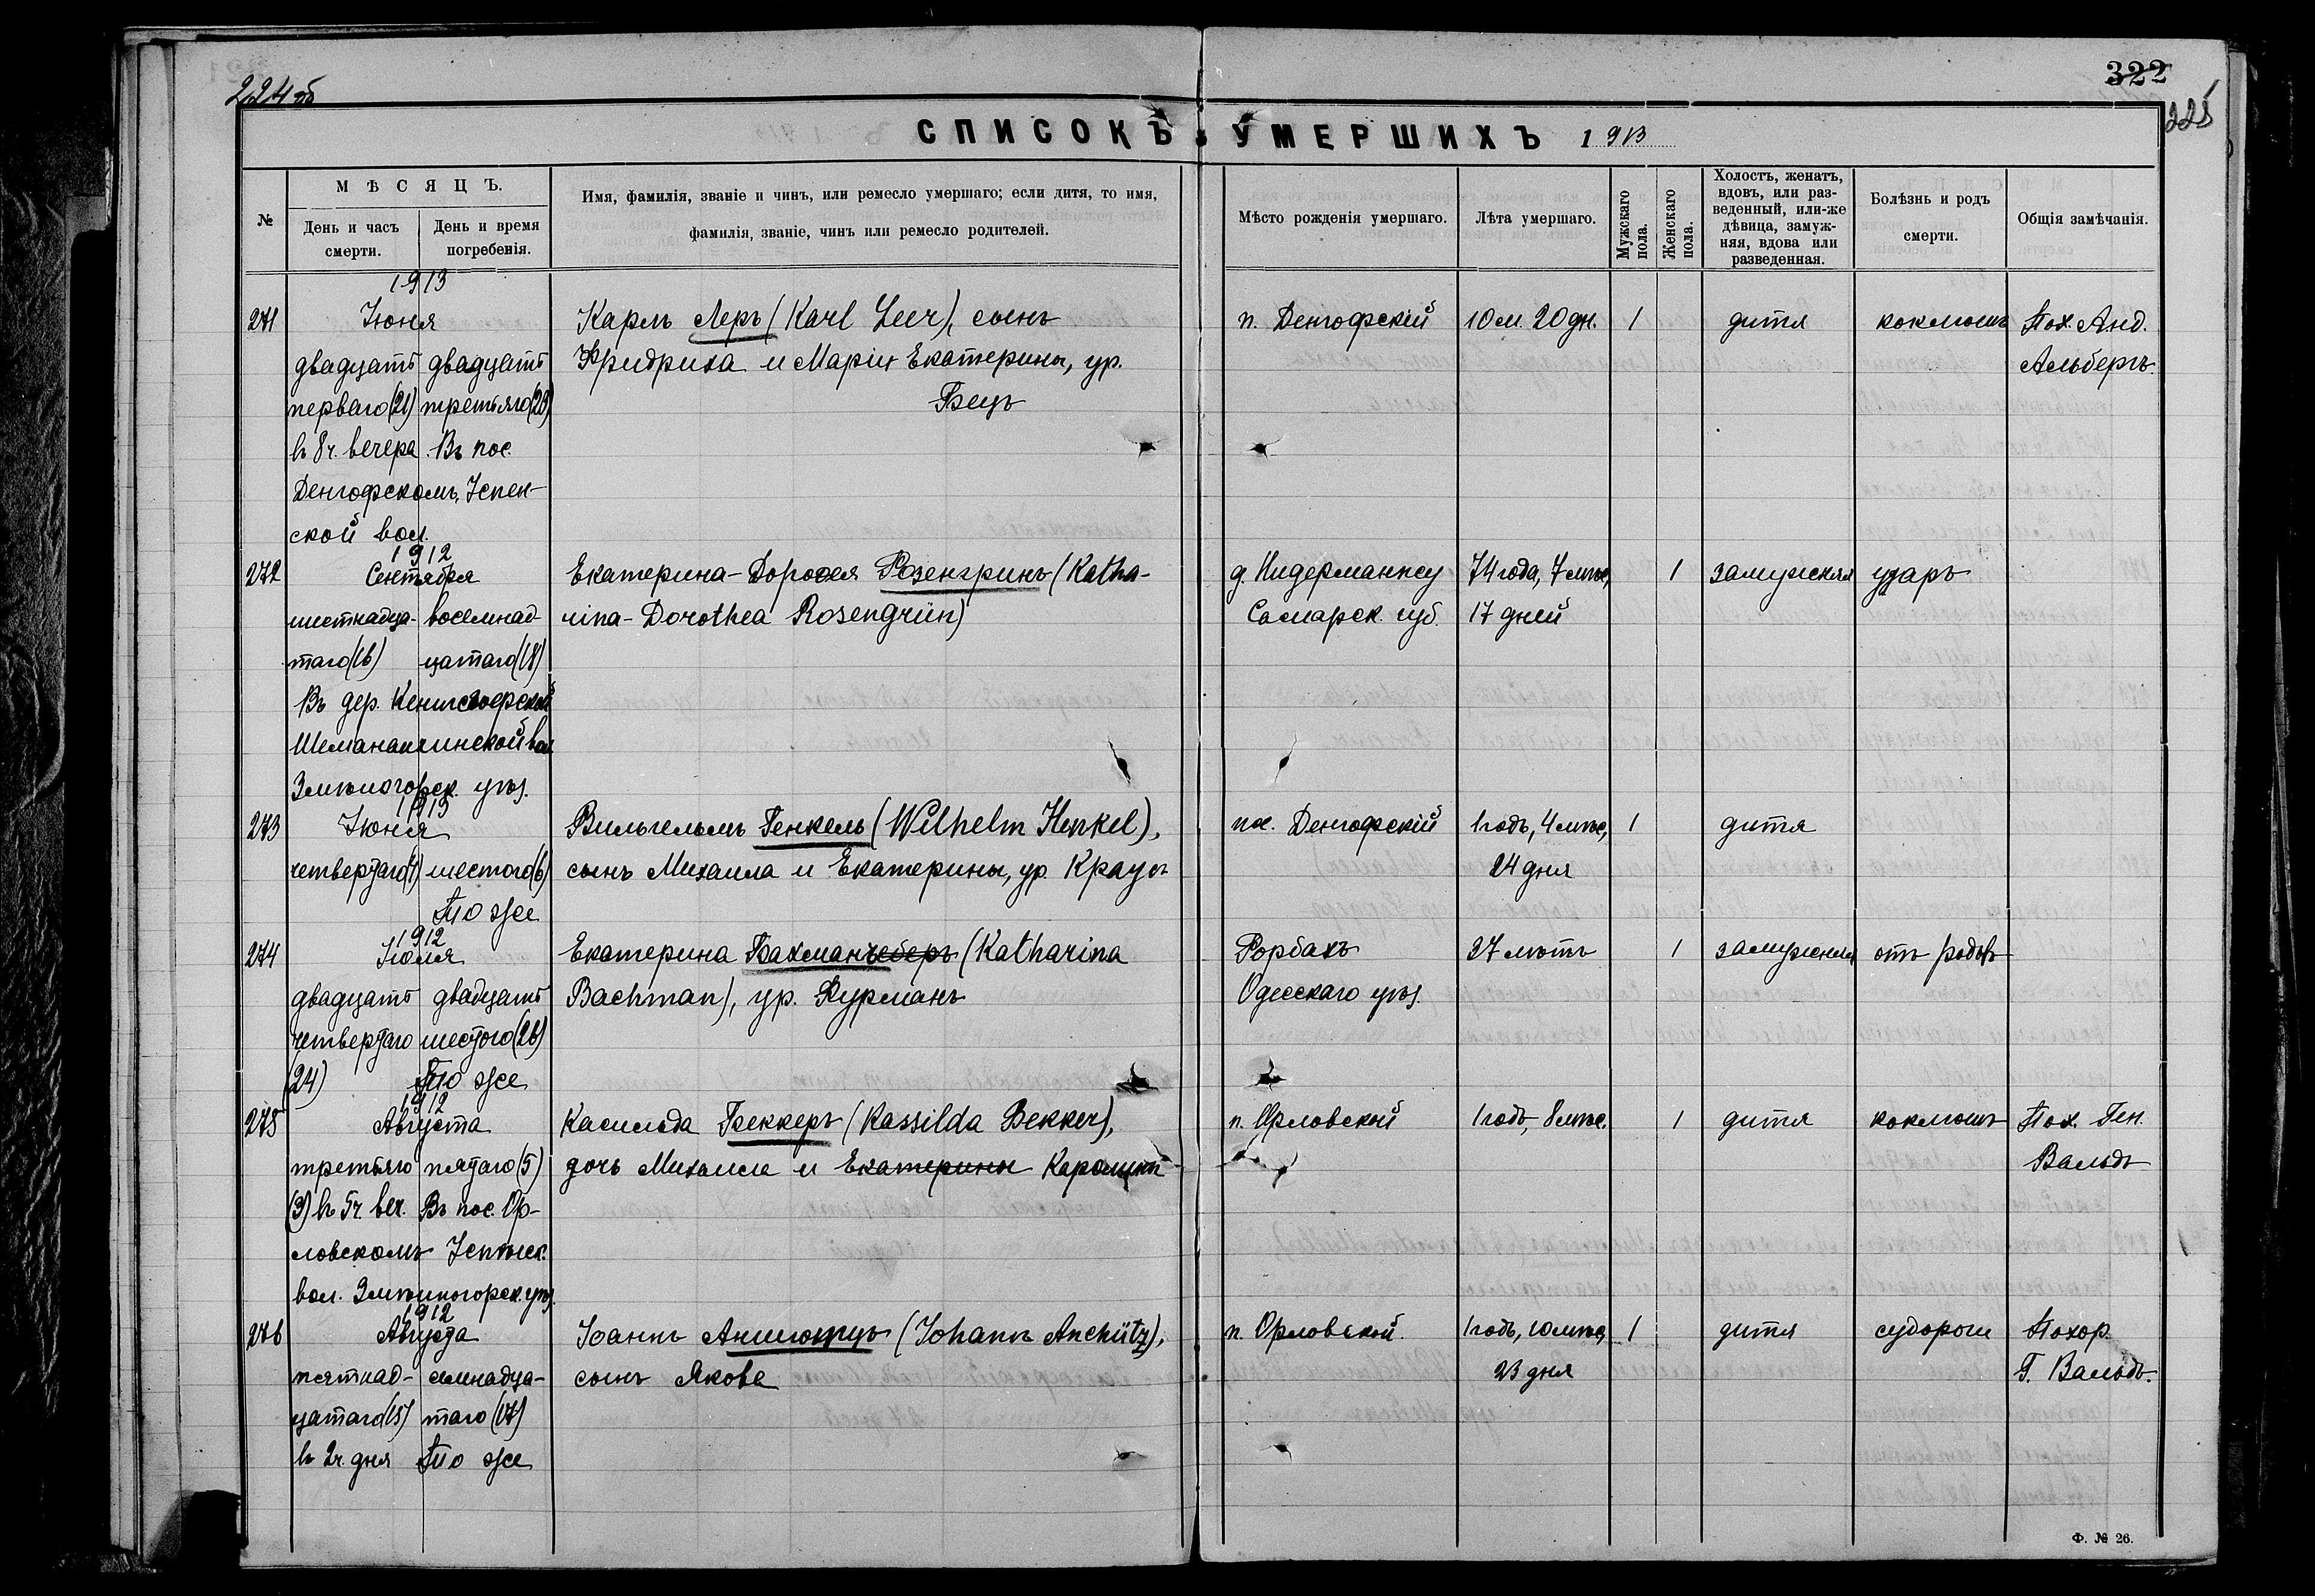 224 об
322
225
СПИСОКЪ УМЕРШИХЪ 1913
№
МѢСЯЦЪ.
День и часъ смерти.
День и время погребенія.
Имя, фамилія, званіе и чинъ, или ремесло умершаго; если дитя, то имя,
фамилія, званіе, чинъ или ремесло родителей.
Мѣсто рожденія умершаго.
Лѣта умершаго.
Мужскаго пола.
Женскаго пола.
Холостъ, женатъ,
вдовъ, или раз-
веденный, или-же
дѣвица, замуж-
няя, вдова или
разведенная.
Болѣзнь и родъ
смерти.
Общія замѣчанія.
1913
271 Іюня Карлъ Леръ (Karl Leer), сынъ п. Денгофскій 10 м. 20 дн. 1 дитя коклюшъ Пох. Анд.
двадцать двадцать Фридриха и Маріи Екатерины, ур. Альбергъ.
перваго (21) третьяго (23) Бецъ
въ 8 ч. вечера. Въ пос.
Денгофскомъ,
ской вол.
1912
272 Сентября Екатерина-Доротея Розенгринъ (Katha- д. Нидерманжу 74 года, 7 мѣс, 1 замужняя ударъ
шестнадца- восемнад- rina-Dorothea Rosengrün) Самарск. губ. 17 дней
таго (16) цатаго (18)
Въ дер.
вол
Змѣиногорск. уѣз.
1913
273 Іюня Вильгельмъ Генкель (Wilhelm Henkel), пос. Денгофскій 1 годъ, 4 мѣс, 1 дитя
четвертаго (4) шестого (6) сынъ Михаила и Екатерины, ур. Краузъ 24 дня
То же
1912
274 Іюля Екатерина Бахманъ (Katharina Рорбахъ 37 лѣтъ 1 замужняя отъ родовъ
двадцать двадцать Bachman), ур. Фурманъ Одесскаго уѣз.
четвертаго шестого (26)
(24) То же
1912
275 Августа Касильда Беккеръ (Kassilda Bekker), п. Орловской 1 годъ, 8 мѣс. 1 дитя коклюшъ Пох. Ген.
третьяго пятаго (5) дочь Михаила и Екатерины Каролины Вальдъ
(3) въ 5 ч. веч. Въ пос. Ор-
ловскомъ
вол. Змѣиногорск. уѣз.
1912
276 Августа Іоаннъ Аншютцъ (Johann Anchütz), п. Орловской. 1 годъ, 10 мѣс, 1 дитя судороги Похор.
пятнад- семнадца- сынъ Якова 23 дня Г. Вальдъ.
цатаго (15) таго (17)
въ 2 ч. дня То же
Ф. № 26.